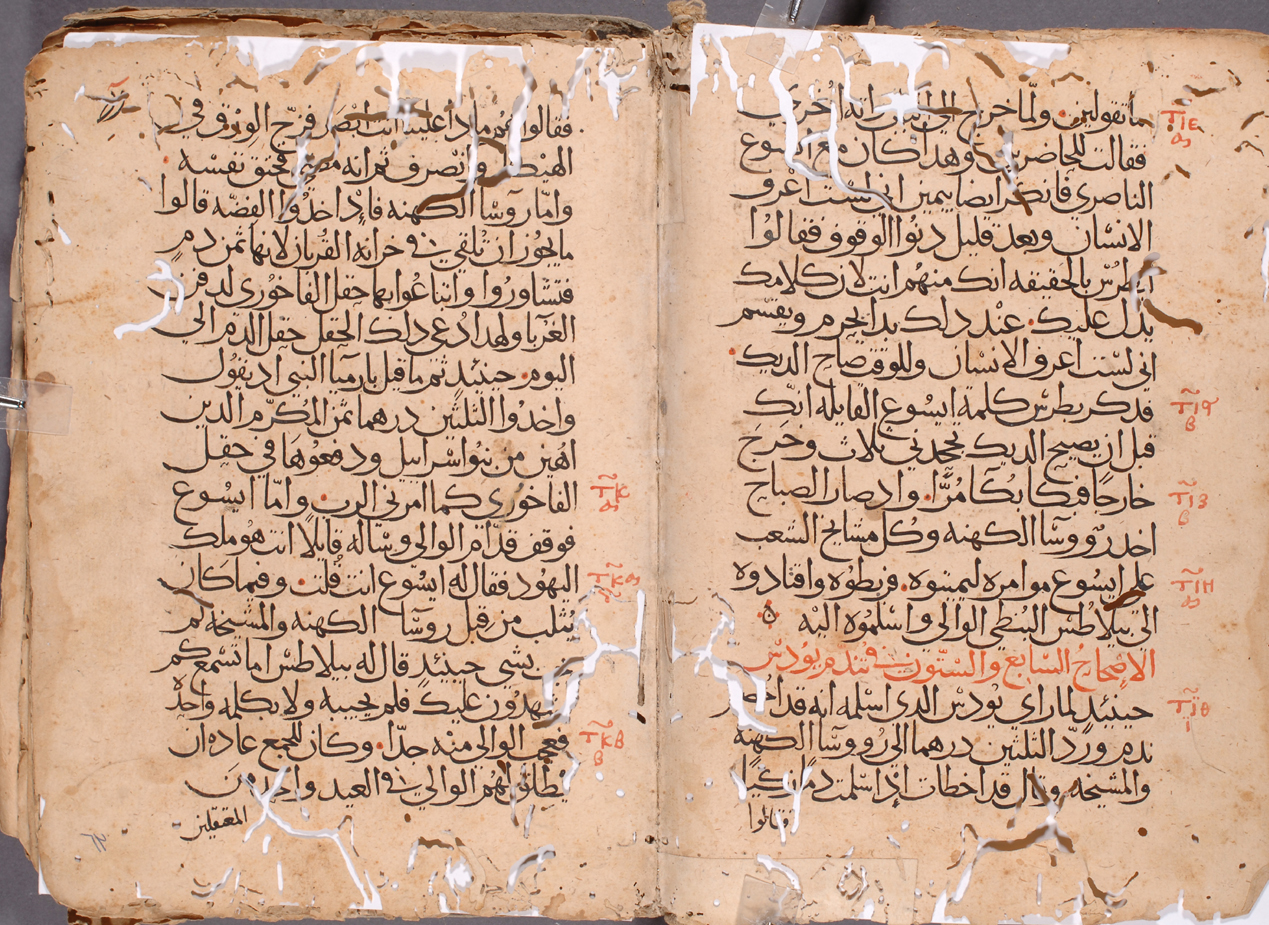 ما تقولين. ولما خرج الي الباب راته اخري
فقالت للحاضرين وهدا كان مع ايسوع
الناصري فانكر ايضا بيمين اني لست اعرف
الانسان وبعد قليل دنوا الوقوف فقالوا
لبطرس بالحقيقه انك منهم انت لان كلامك
يدل عليك. عند دلك بدا يحرم ويقسم
اني لست اعرف الانسان وللوقت صاح الديك.
فدكر بطرس كلمة ايسوع القايله انك
قبل ان يصيح الديك تجحدني ثلاث وخرج
خارجا فبكا بكا مرا. واد صار الصباح
اخد رووسا الكهنه وكل مشايخ الشعب
علي ايسوع موامره ليميتوه. فربطوه واقتادوه
الي بيلاطس البنطي الوالي واسلموه اليه
الاصحاح السابع والستون في تندم يودس
حينيد لما راي يودس الدي اسلمه انه قد
ندم ورد الثلثين درهما الي رووسا الكهنه
والمشيخه وقال قد اخطات اذ اسلمت دما زكيا
فقالوا
ⲦⲒⲈ
ⲦⲒⳌ
Ⲃ
ⲦⲒⲌ
Ⲃ
ⲦⲒⲎ
ⲦⲒⲐ
Ⲓ
فقالوا هم مادا علينا انت ابصر فرح الورق في
الهيكل وانصرف ثم انه مضي فخنق نفسه.
واما روسا الكهنه فاد اخدوا الفضه قالوا
ما يجوز ان تلقي في خزانة القربان لانها ثمن دم
فتشاوروا وابتاعوا بها حقل الفاخوري لدفن
الغربا ولهدا دعي دلك الحقل حقل الدم الي
اليوم. حينيد تم ما قيل بارميا النبي اد يقول
واخدوا الثلثين درهما ثمن المكرم الدين
اهين من بنوا اسراييل ودفعوها في حقل
الفاخوري كما امرني الرب. واما ايسوع
فوقف قدام الوالي وساله قايلا انت هو ملك
اليهود فقال له ايسوع انت قلت. وفيما كان
يثلب من قبل روسا الكهنه والمشيخه لم
يجب بشي حينيد قال له بيلاطس اما تسمع كم
يشهدون عليك فلم يجيبه ولا بكلمه واحده
فعجب الوالي منه جدا. وكان للمجمع عاده ان
يطلق لهم الوالي في العيد واحد من
المعتقلين
ⲦⲔ
ⲦⲔⲀ
ⲦⲔⲂ
Ⲃ